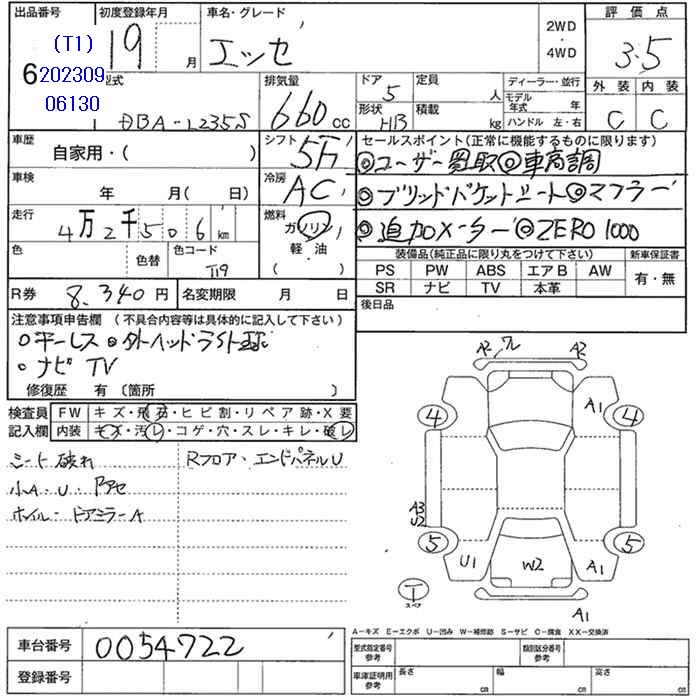 出品番号 初度登録年月 車名・グレード 評価点
(T1) 19 月 エッセ 2WD ・ 4WD 3.5
6 202309
06130
型式 排気量 ドア 5 定員 人 ディーラー・並行 外装 内装
DBA-L235S 660 cc 形状 HB 積載 kg モデル年式 年 C C
ハンドル 左・右
車歴 シフト 5F セールスポイント(正常に機能するものに限ります)
自家用・( ) ◎ユーザー買取◎車高調
車検 年 月(日) 冷房 AC ◎ブリッドバケットシート◎マフラー
走行 4万2千506km 燃料 ガソリン ◎追加メーター◎ZERO1000
軽・油
( )
色 色替 色コード T19
装備品(純正品に限り丸をつけて下さい) 新車保証書
PS PW ABS エアB AW 有・無
SR ナビ TV 本革
R券 8,340円 名変期限 月 日 後日品
注意事項申告欄(不具合内容等は具体的に記入して下さい)
○キーレス ○外ヘッドライト球
○ナビTV
修復歴 有〔箇所 〕
検査員記入欄 FW キズ・飛石・ヒビ割・リペア跡・X要
内装 キズ・汚レ・コゲ・穴・スレ・キレ・破レ
シート破れ Rフロア・エンドパネルU
小A・U・アセ
ホイル・ドアミラーA
A2 ワレ A2
4 A1 4
A3
U2
5 U1 W2 A1 5
T
スペア
A1
A-キズ E-エクボ U-凹み W-補修跡 S-サビ C-腐食 XX-交換済
車台番号 0054722 型式指定番号 参考 類別区分番号 参考
登録番号 車庫証明用 参考 長さ cm 幅 cm 高さ cm